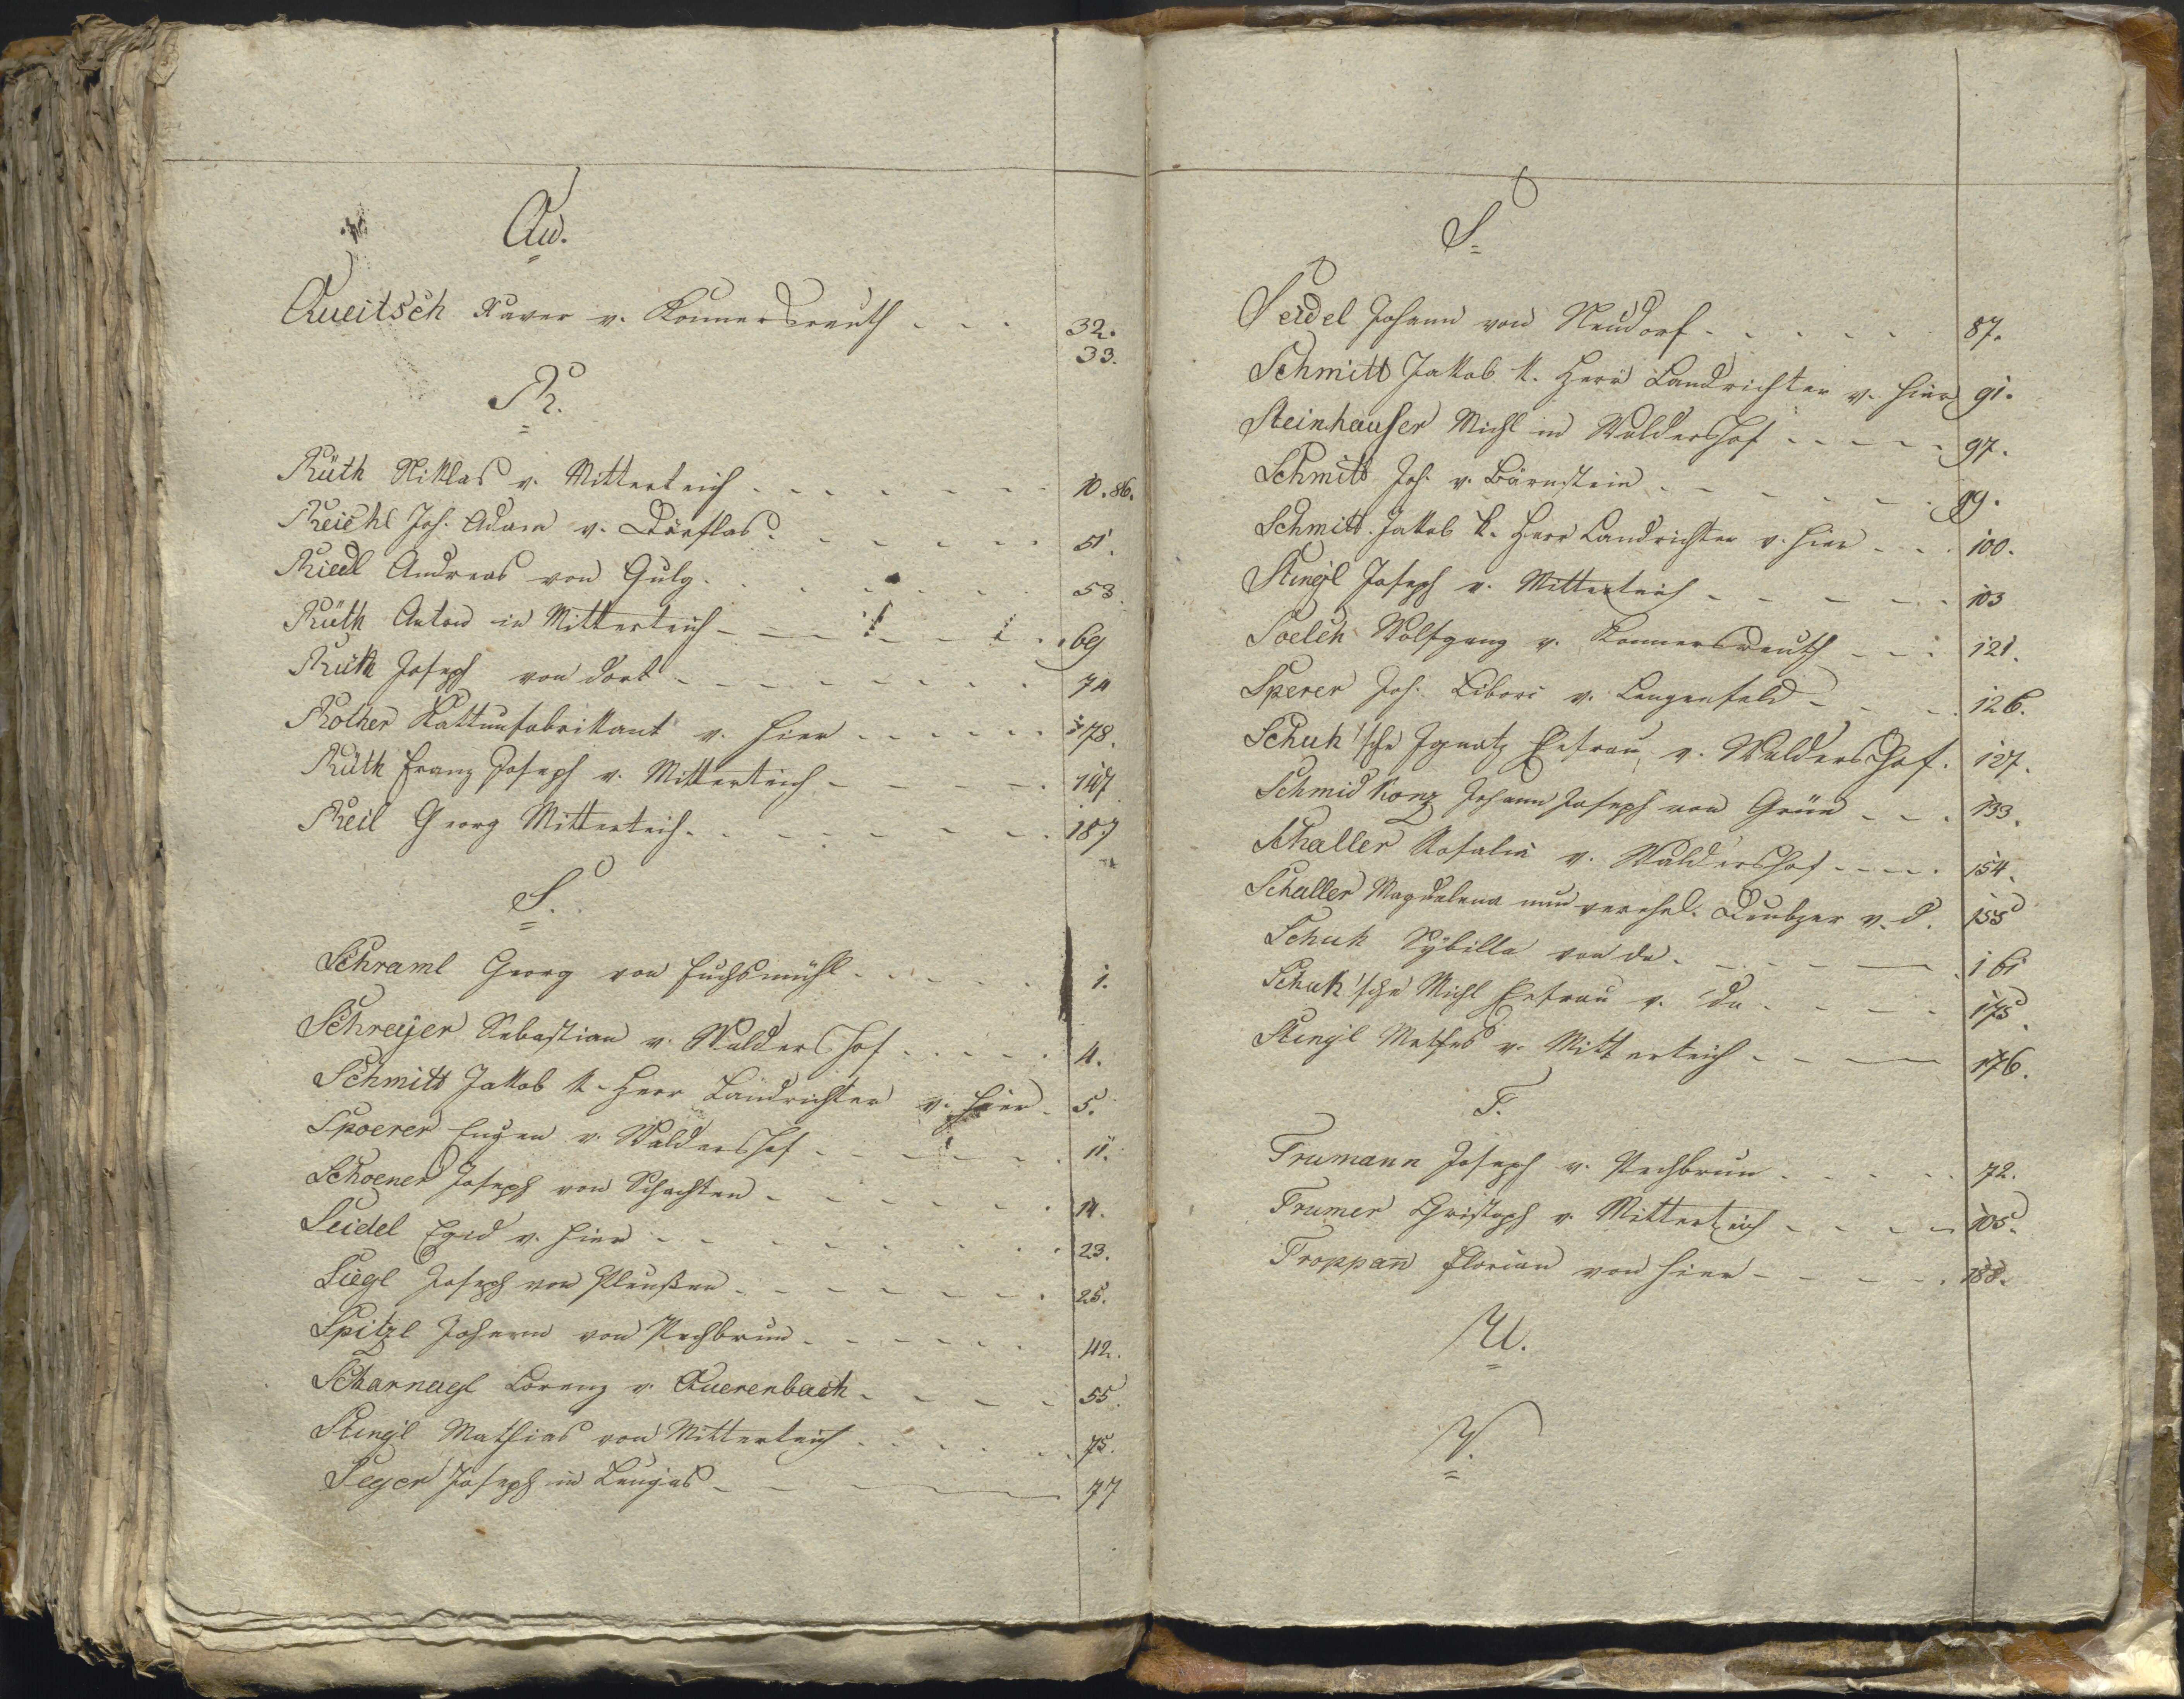 Qu.
Queitsch Xaver v. Konnersreuth - - - 32.
33.
R.
Rüth Niklas v. Mitterteich - - - - - - 10. 86.
Reichl Joh. Adam v. Dörflas - - - - - 51.
Riedl Andreas von Gulg - - - - - - 53.
Rüth Anton in Mitterteich - - - - - - 69
Rüth Joseph von dort - - - - - - - 74
Rother Kattunfabrikant v. hier - - - - - 78.
Rüth Franz Joseph v. Mitterteich - - - - 147
Reil Georg Mitterteich - - - - - - - 187
S.
Schraml Georg von Fuchsmühl - - - - - 1.
Schreyer Sebastian v. Waldershof - - - - - 4.
Schmitt Jakob k. Herr Landrichter v. hier - 5.
Spoerer Eugen v. Waldershof - - - - - - 11.
Schoener Joseph von Schachten - - - - - - 14.
Seidel Egid v. hier - - - - - - - 23.
Siegl Joseph von Pleußen - - - - - - - 25.
Spitzl Johann von Pechbrun - - - - - 42.
Scharnagl Lorenz v. Querenbach - - - - 55.
Stingl Mathias von Mitterteich - - - - - 75.
Seyer Joseph in Lengas - - - - 77
S
Seidel Johann von Neudorf - - - - - 87.
Schmitt Jakob k. Herr Landrichter v. hier 91.
Steinhauser Michl in Waldershof - - - - - 97.
Schmitt Joh. v. Bärnstein - - - - - - 99.
Schmitt Jakob k. Herr Landrichter v. hier - - - 100.
Stingl Joseph v. Mitterteich - - - - - 103
Soelch Wolfgang v. Konnersreuth - - - 121.
Sperer Joh. Libori v. Lengenfeld - - - 126.
Schuh'sche Ignatz Ehfrau v. Waldershof. 127.
Schmidkonz Johann Joseph von Grün - - - 133.
Schaller Rosalia v. Waldershof - - - - 154.
Schaller Magdalena nun verehel. v. d. 155
Schuh Sybilla von da - - - - - 161
Schuh'sche Michl Ehfrau v. da - - - - - 175.
Stingl Mathes v. Mitterteich - - - 176.
T.
Trumann Joseph v. Pechbrun - - - - - 72.
Trumer Christoph v. Mitterteich - - - - 105.
Troppan̄ Florian von hier - - - - - 188.
U.
V.